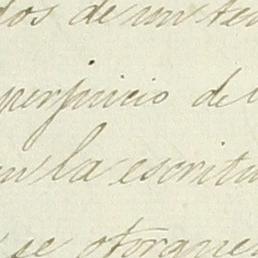 dos de un te
perjuicio del
en la escritu
se otorgue